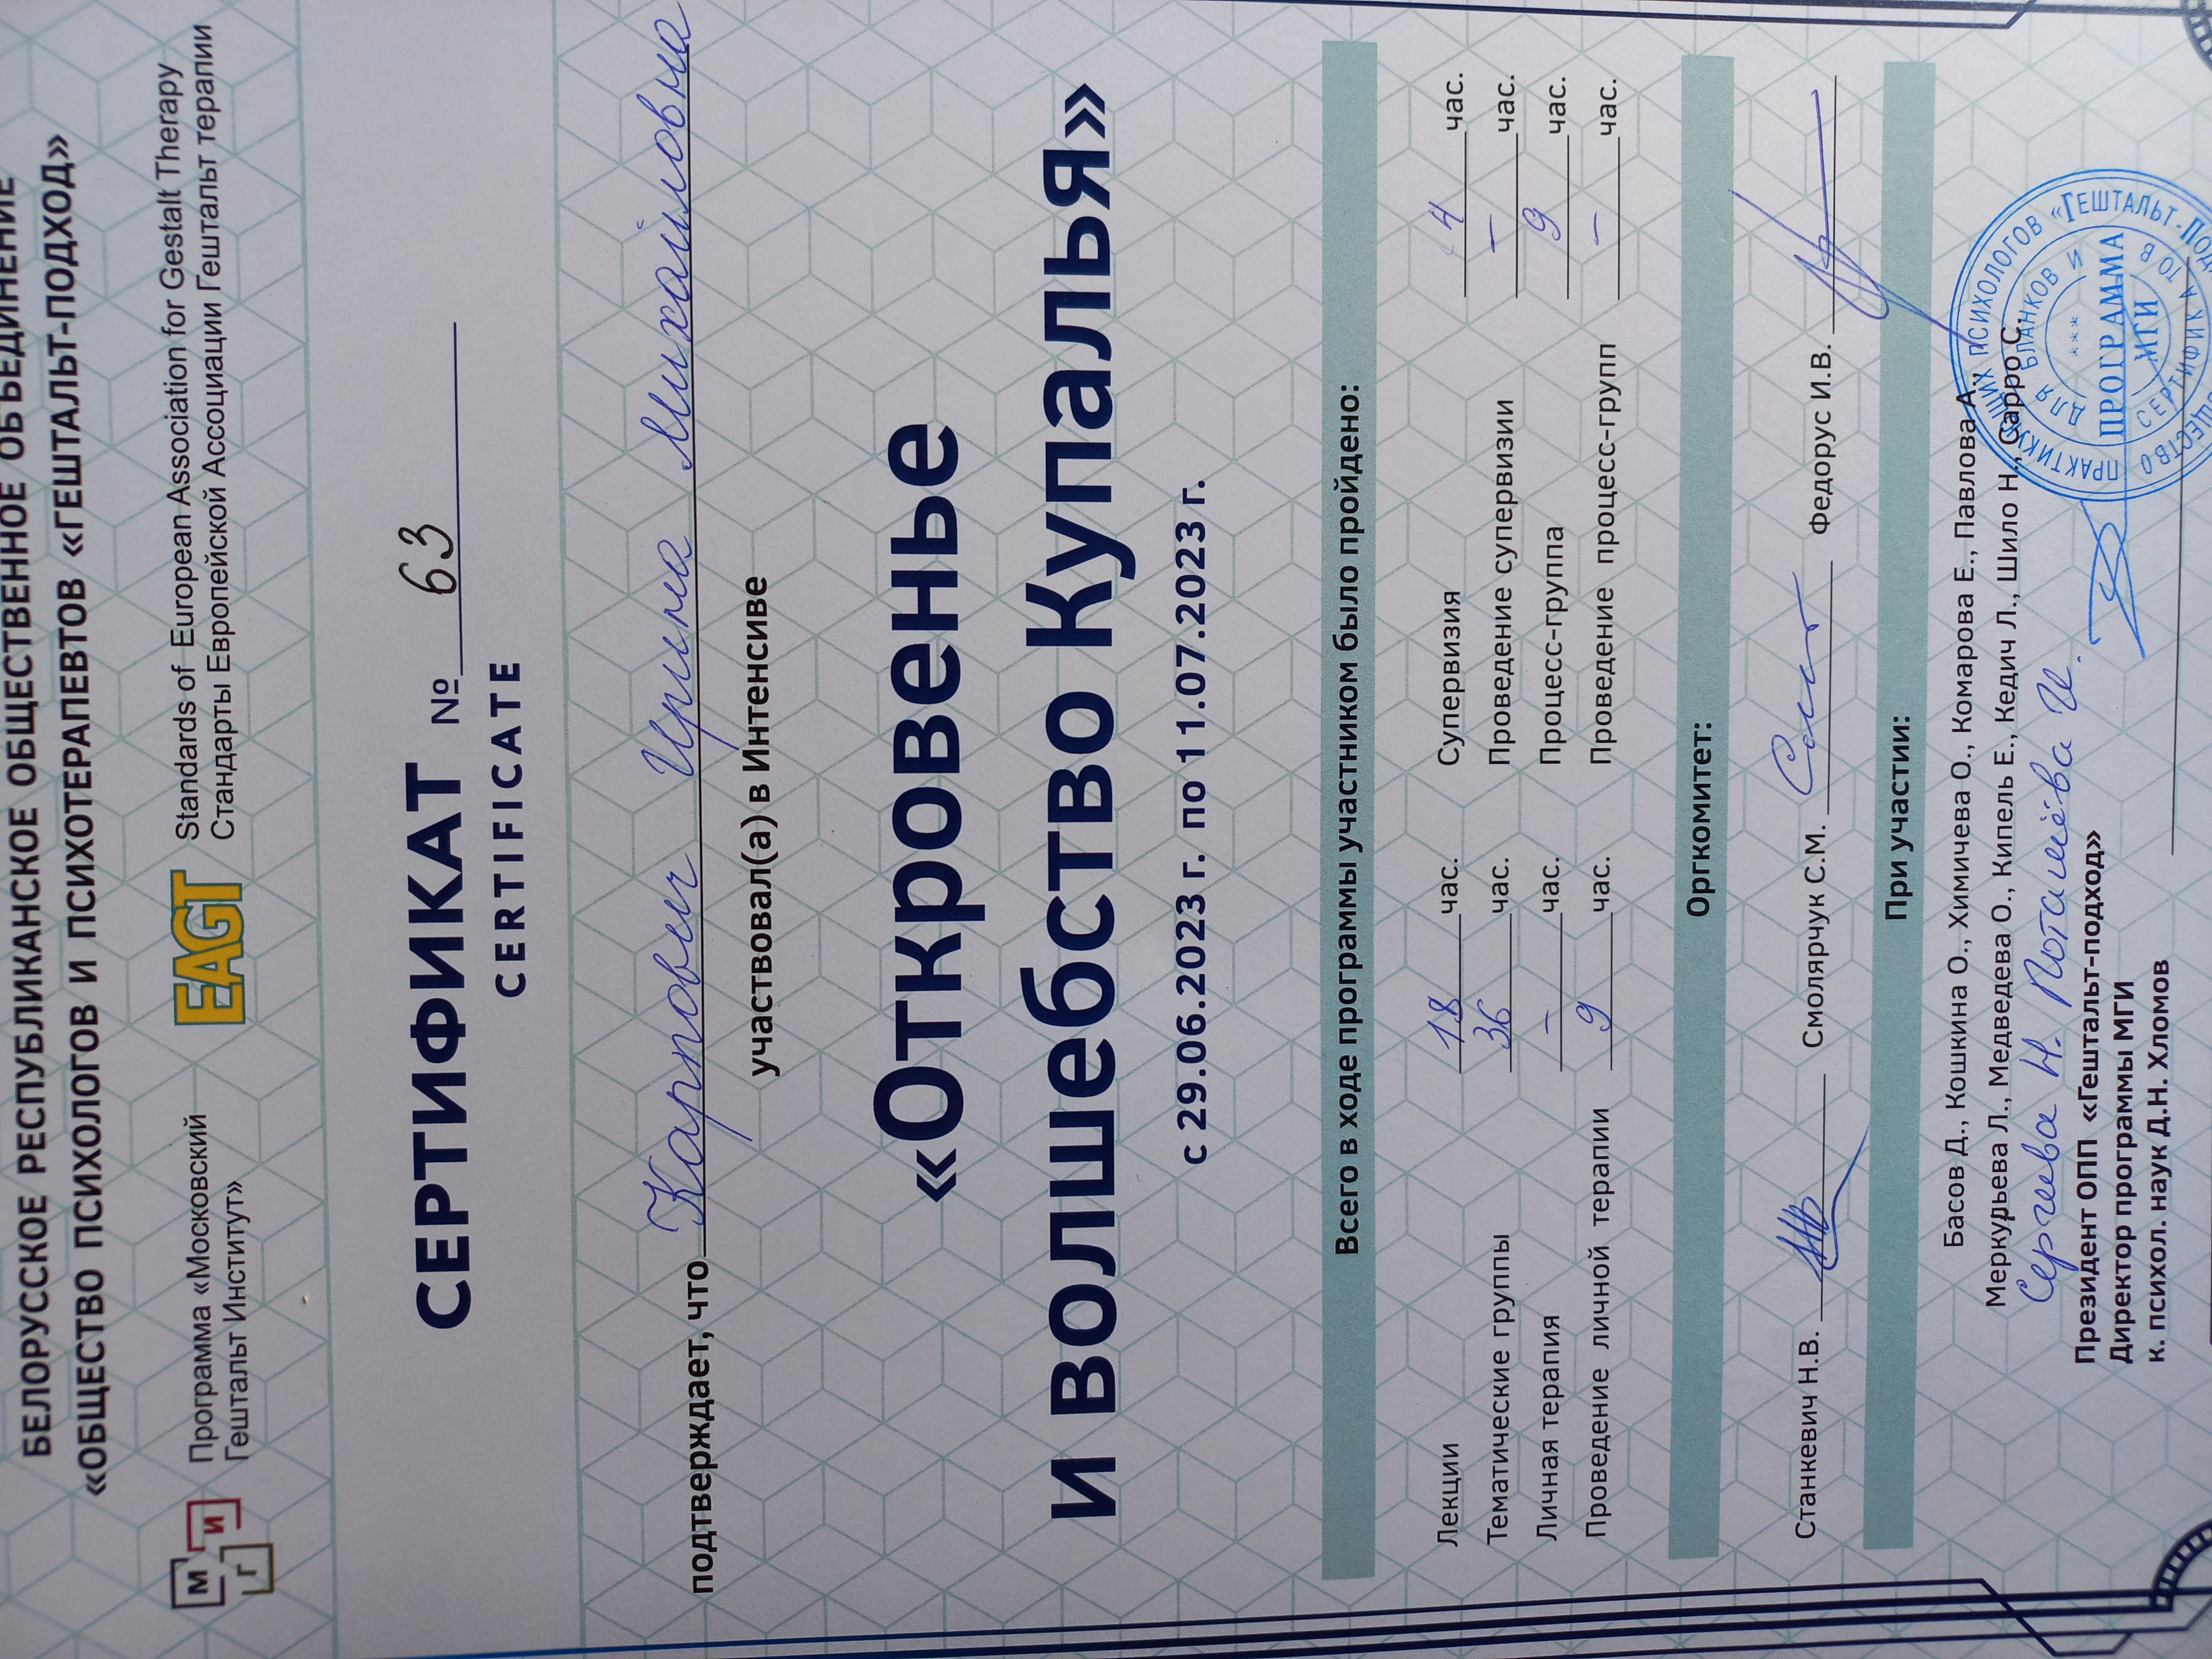 БЕЛОРУССКОЕ РЕСПУБЛИКАНСКОЕ ОБЩЕСТВЕННОЕ ОБЪЕДИНЕНИЕ
«ОБЩЕСТВО ПСИХОЛОГОВ И ПСИХОТЕРАПЕВТОВ «ГЕШТАЛЬТ-ПОДХОД»
М И Г
Программа «Московский
Гештальт Институт»
EAGT
Standards of European Association for Gestalt Therapy
Стандарты Европейской Ассоциации Гештальт терапии
СЕРТИФИКАТ № 63
CERTIFICATE
подтверждает, что Карпович Ирина Михайловна
участвовал(а) в Интенсиве
«Откровенье
и волшебство Купалья»
с 29.06.2023 г. по 11.07.2023 г.
Всего в ходе программы участником было пройдено:
Лекции 18 час. Супервизия 4 час.
Тематические группы 36 час. Проведение супервизии — час.
Личная терапия — час. Процесс-группа 9 час.
Проведение личной терапии 9 час. Проведение процесс-групп — час.
Оргкомитет:
Станкевич Н.В. Смолярчук С.М. Федорус И.В.
При участии:
Басов Д., Кошкина О., Химичева О., Комарова Е., Павлова А.,
Меркурьева Л., Медведева О., Кипель Е., Кедич Л., Шило Н., Сарро С.
Сергиева Н. Поташёва И.
Президент ОПП «Гештальт-подход»
Директор программы МГИ
к. психол. наук Д.Н. Хломов
ПРАКТИКУЮЩИХ ПСИХОЛОГОВ «ГЕШТАЛЬТ-ПОДХОД
ДЛЯ БЛАНКОВ И
***
ПРОГРАММА
МГИ
СЕРТИФИКАТОВ